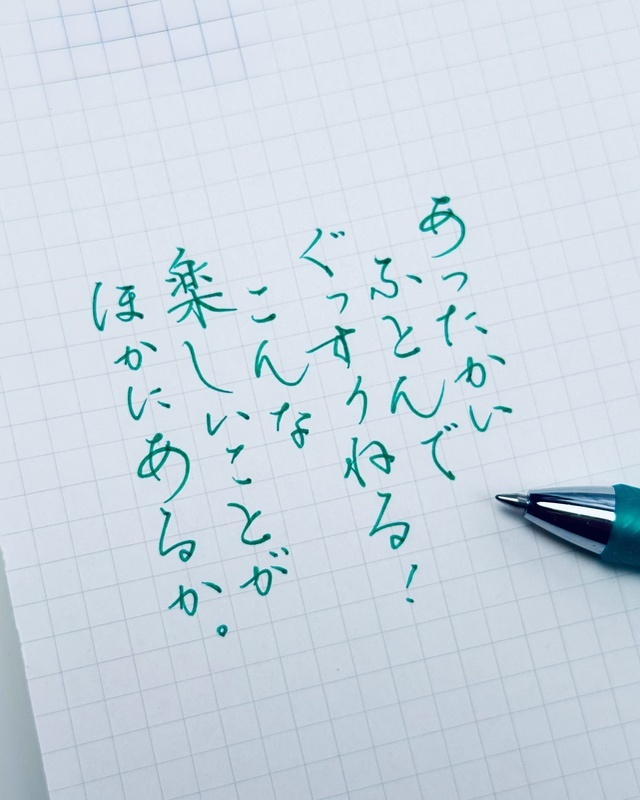 あったかい
ふとんで
ぐっすりねる！
こんな
楽しいことが
ほかにあるか。